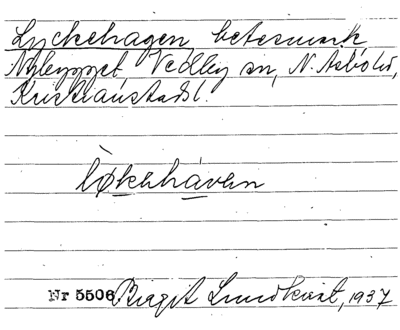 Lyckehagen, betesmark
Nybygget, Vedby sn, N. Åsbo hd,
Kristianstads l.
lỳkehávan
Nr 5506 Birgit Lundkvist, 1937